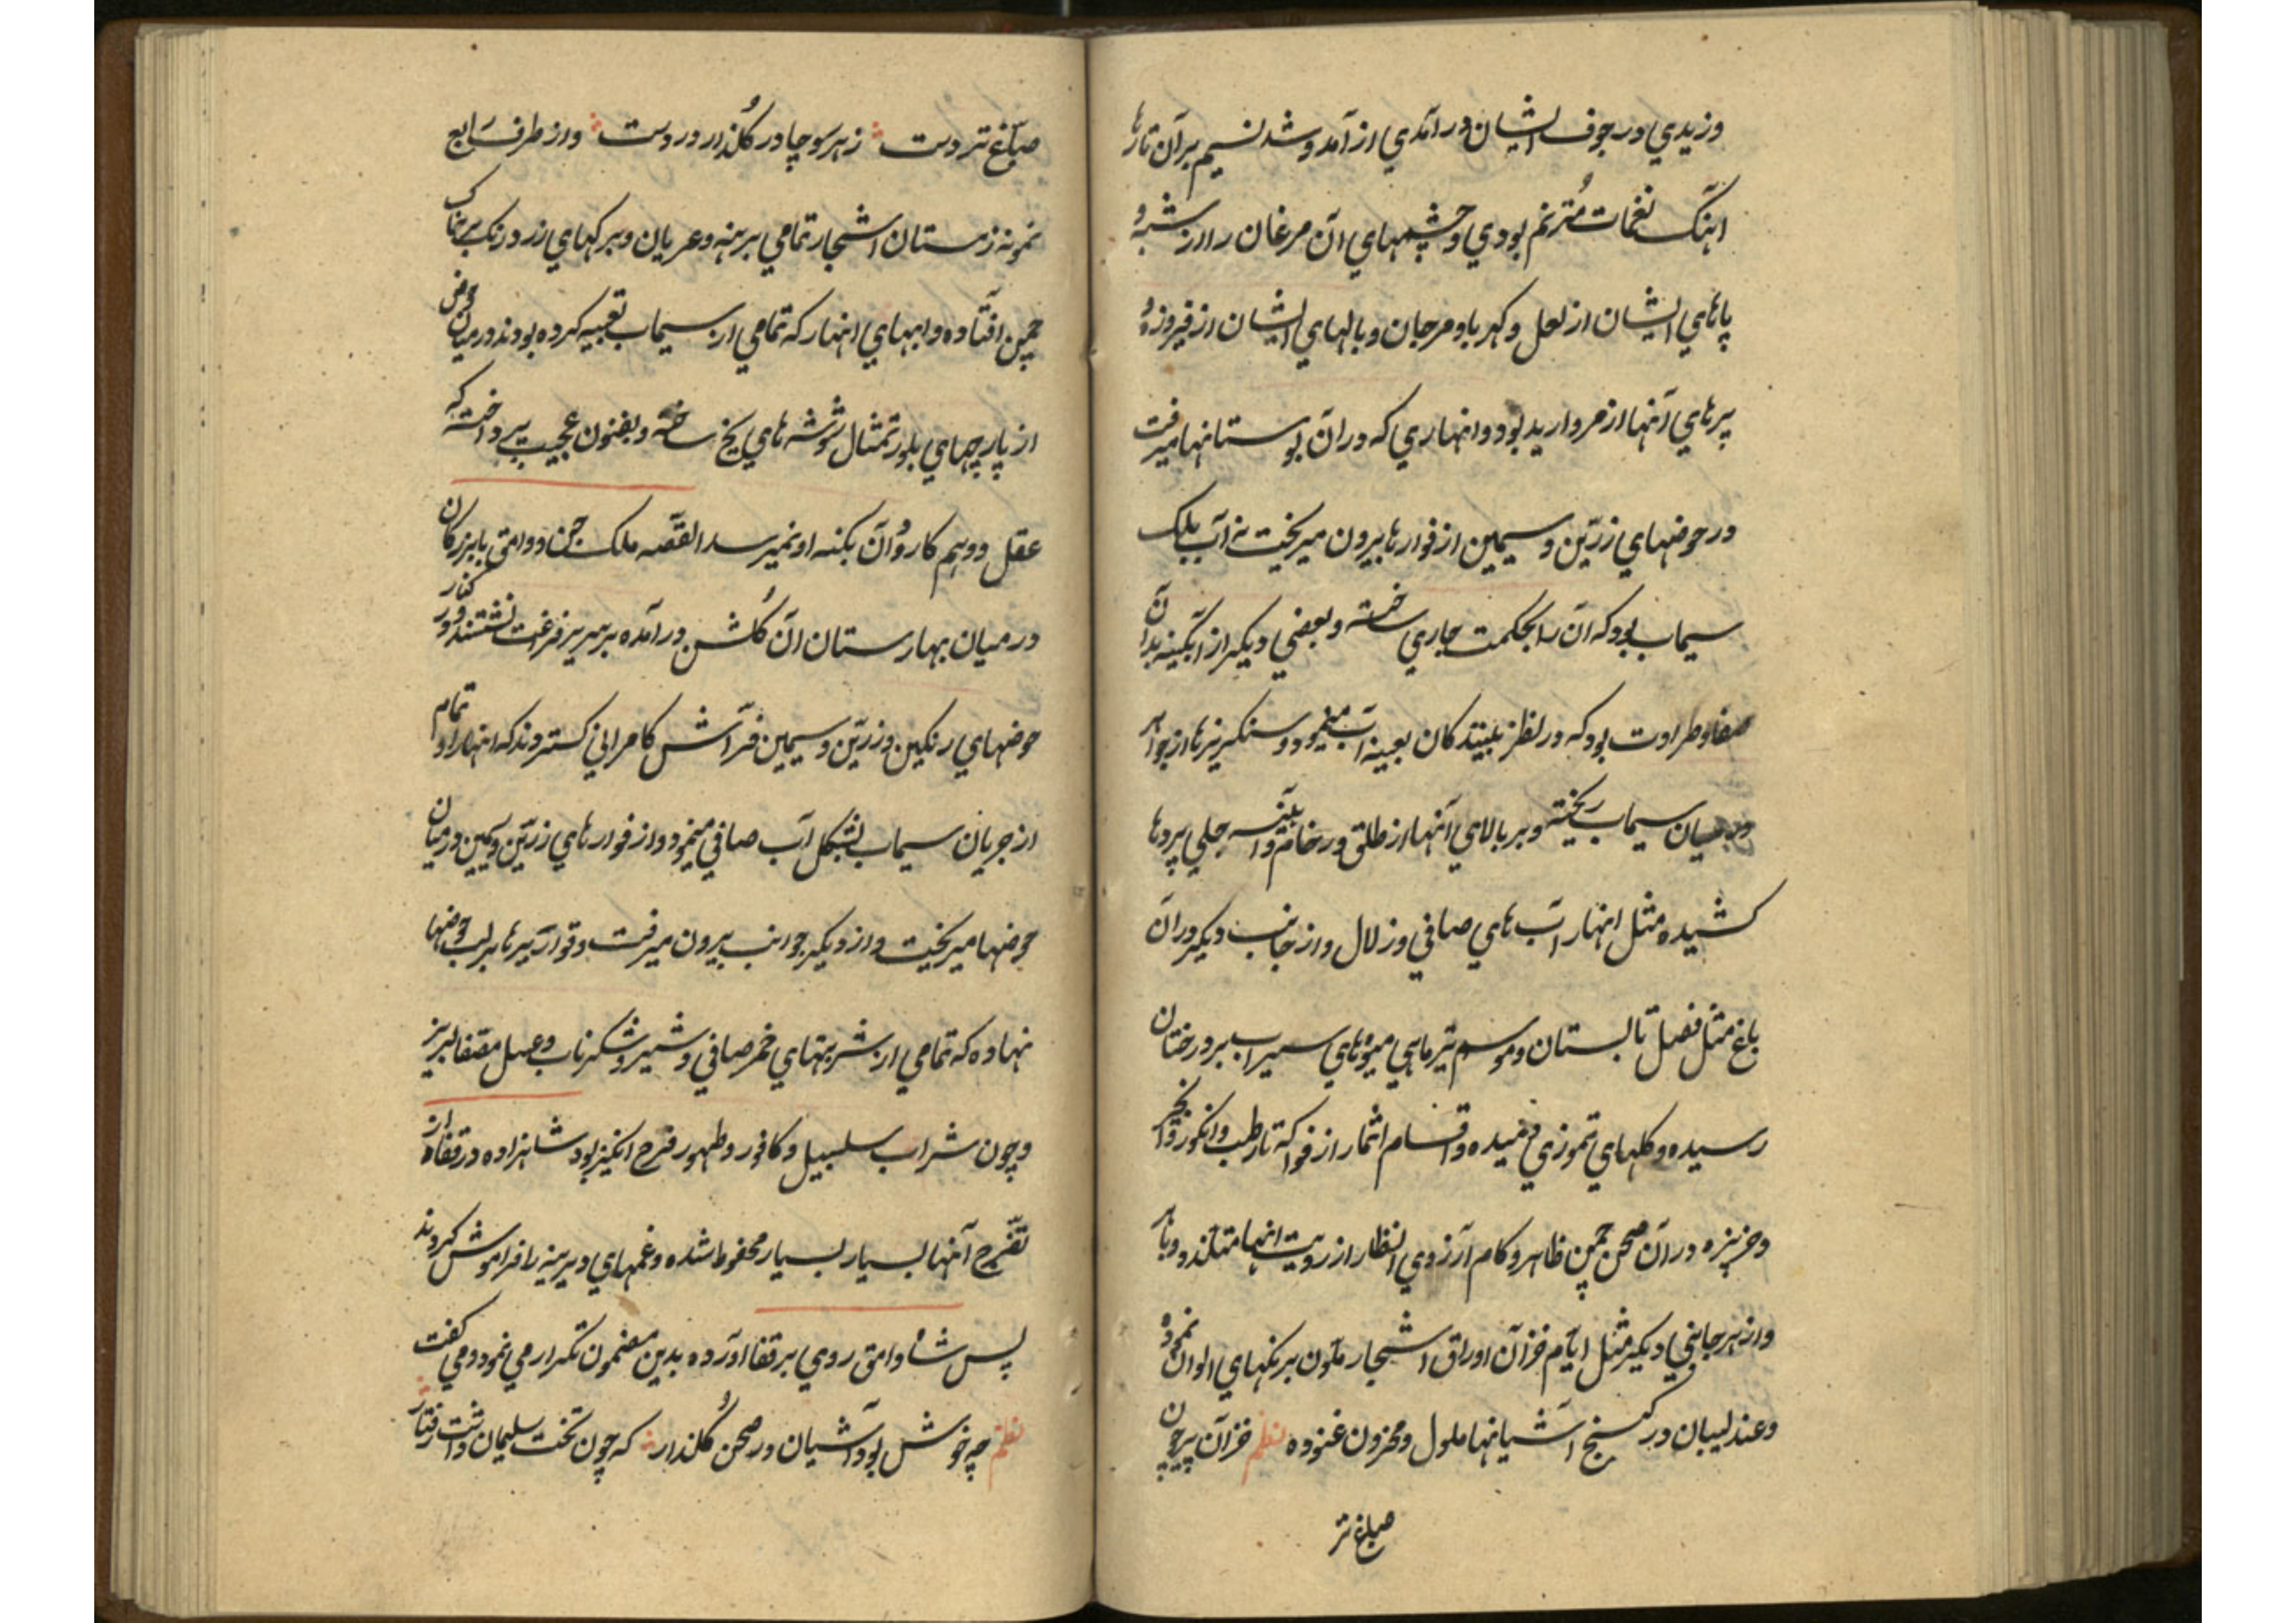 وزیدي در جوف ایشان درآمدي از آمد و شد نسیم بر آن تارها
آهنگ نغمات مُترنم بودي و چشمهاي آن مرغان را از شبه و
پاهاي ایشان از لعل و کهربا و مرجان و بالهاي ایشان از فیروزه و
پرهاي آنها از مروارید بود و انهاري که در آن بوستانها میرفت
در حوضهاي زرّین و سیمین از فوارها بیرون میریخت نه آب بلک
سیماب بود که آن را بحکمت جاري ساخته و بعضي دیکر از آبکینه بدان
صفا و طراوت بود که در نظر بینندکان بعینه آب مینمود و سنکریزها از جواهر
در میان سیماب ریخته و بر بالاي آنها از طلق و رخام و آئینه جلي پردها
کشیده مثل انهار آب هاي صافي و زلال و از جانب دیکر در آن
باغ مثل فصل تابستان و موسم تیر ماهي میوهاي سیراب بر درختان
رسیده و کلهاي تموزي دمیده و اقسام اثمار از فواکه تا رطب و انکور و انجیر
و خرپزه در آن صحن چمن ظاهر و کام آرزوي انظار از رویت انها متلذذ و باهر
و از هر جانبي دیکر مثل ایّام خزان اوراق اشجار ملون برنکهاي الوان نموده
و عندلیبان در کنج آشیانها ملول و محزون غنوده نظم خزان بیرچون
صباغ تر
صبّاغ تردست ز هر سو چادر کُلذار در دست و از طرف رابع
نمونه زمستان اشجار تمامي برهنه و عریان و برکهاي زرد رنک بر خاک
چمن افتاده و ابهاي انهار که تمامي از سیماب تعبیه کرده بودند در میان حوض
از پارچهاي بلور تمثال شوشه هاي یخ ساخته و بفنون عجیب پرداخته که
عقل و وهم کاروان بکنه او نمیرسد القصّه ملک جن و وامق با بزرکان
در میان بهارستان آن کُلشن درآمده بر سریر فرغت نشستند و در کنار
حوضهاي رنکین و زرّین و سیمین فرّاش کامراني کستردند که انهار او تمام
از جریان سیماب بشکل آب صافي مینمود و از فوارهاي زرّین و سیمین در میان
حوضها میریخت و از دیکر جوانب بیرون میرفت و قواریرها بر لب حوضها
نهاده که تمامي از شربتهاي خمر صافي و شیر و شکر ناب و عسل مصفا لبریز
و چون شراب سلسبیل و کافور و طهور فرح انکیز بود شاهزاده و رفقاء از
تفرّج آنها بسیار بسیار محظوظ شده و غمهاي دیرینه را فراموش کردند
پس شاه وامق روي بر قفا آورده بدین مضمون تکرار مي نمود و مي کفت
نظم چه خوش بود آشیان در صحن کُلذار که چون تخت سلیمان داشت رفتار